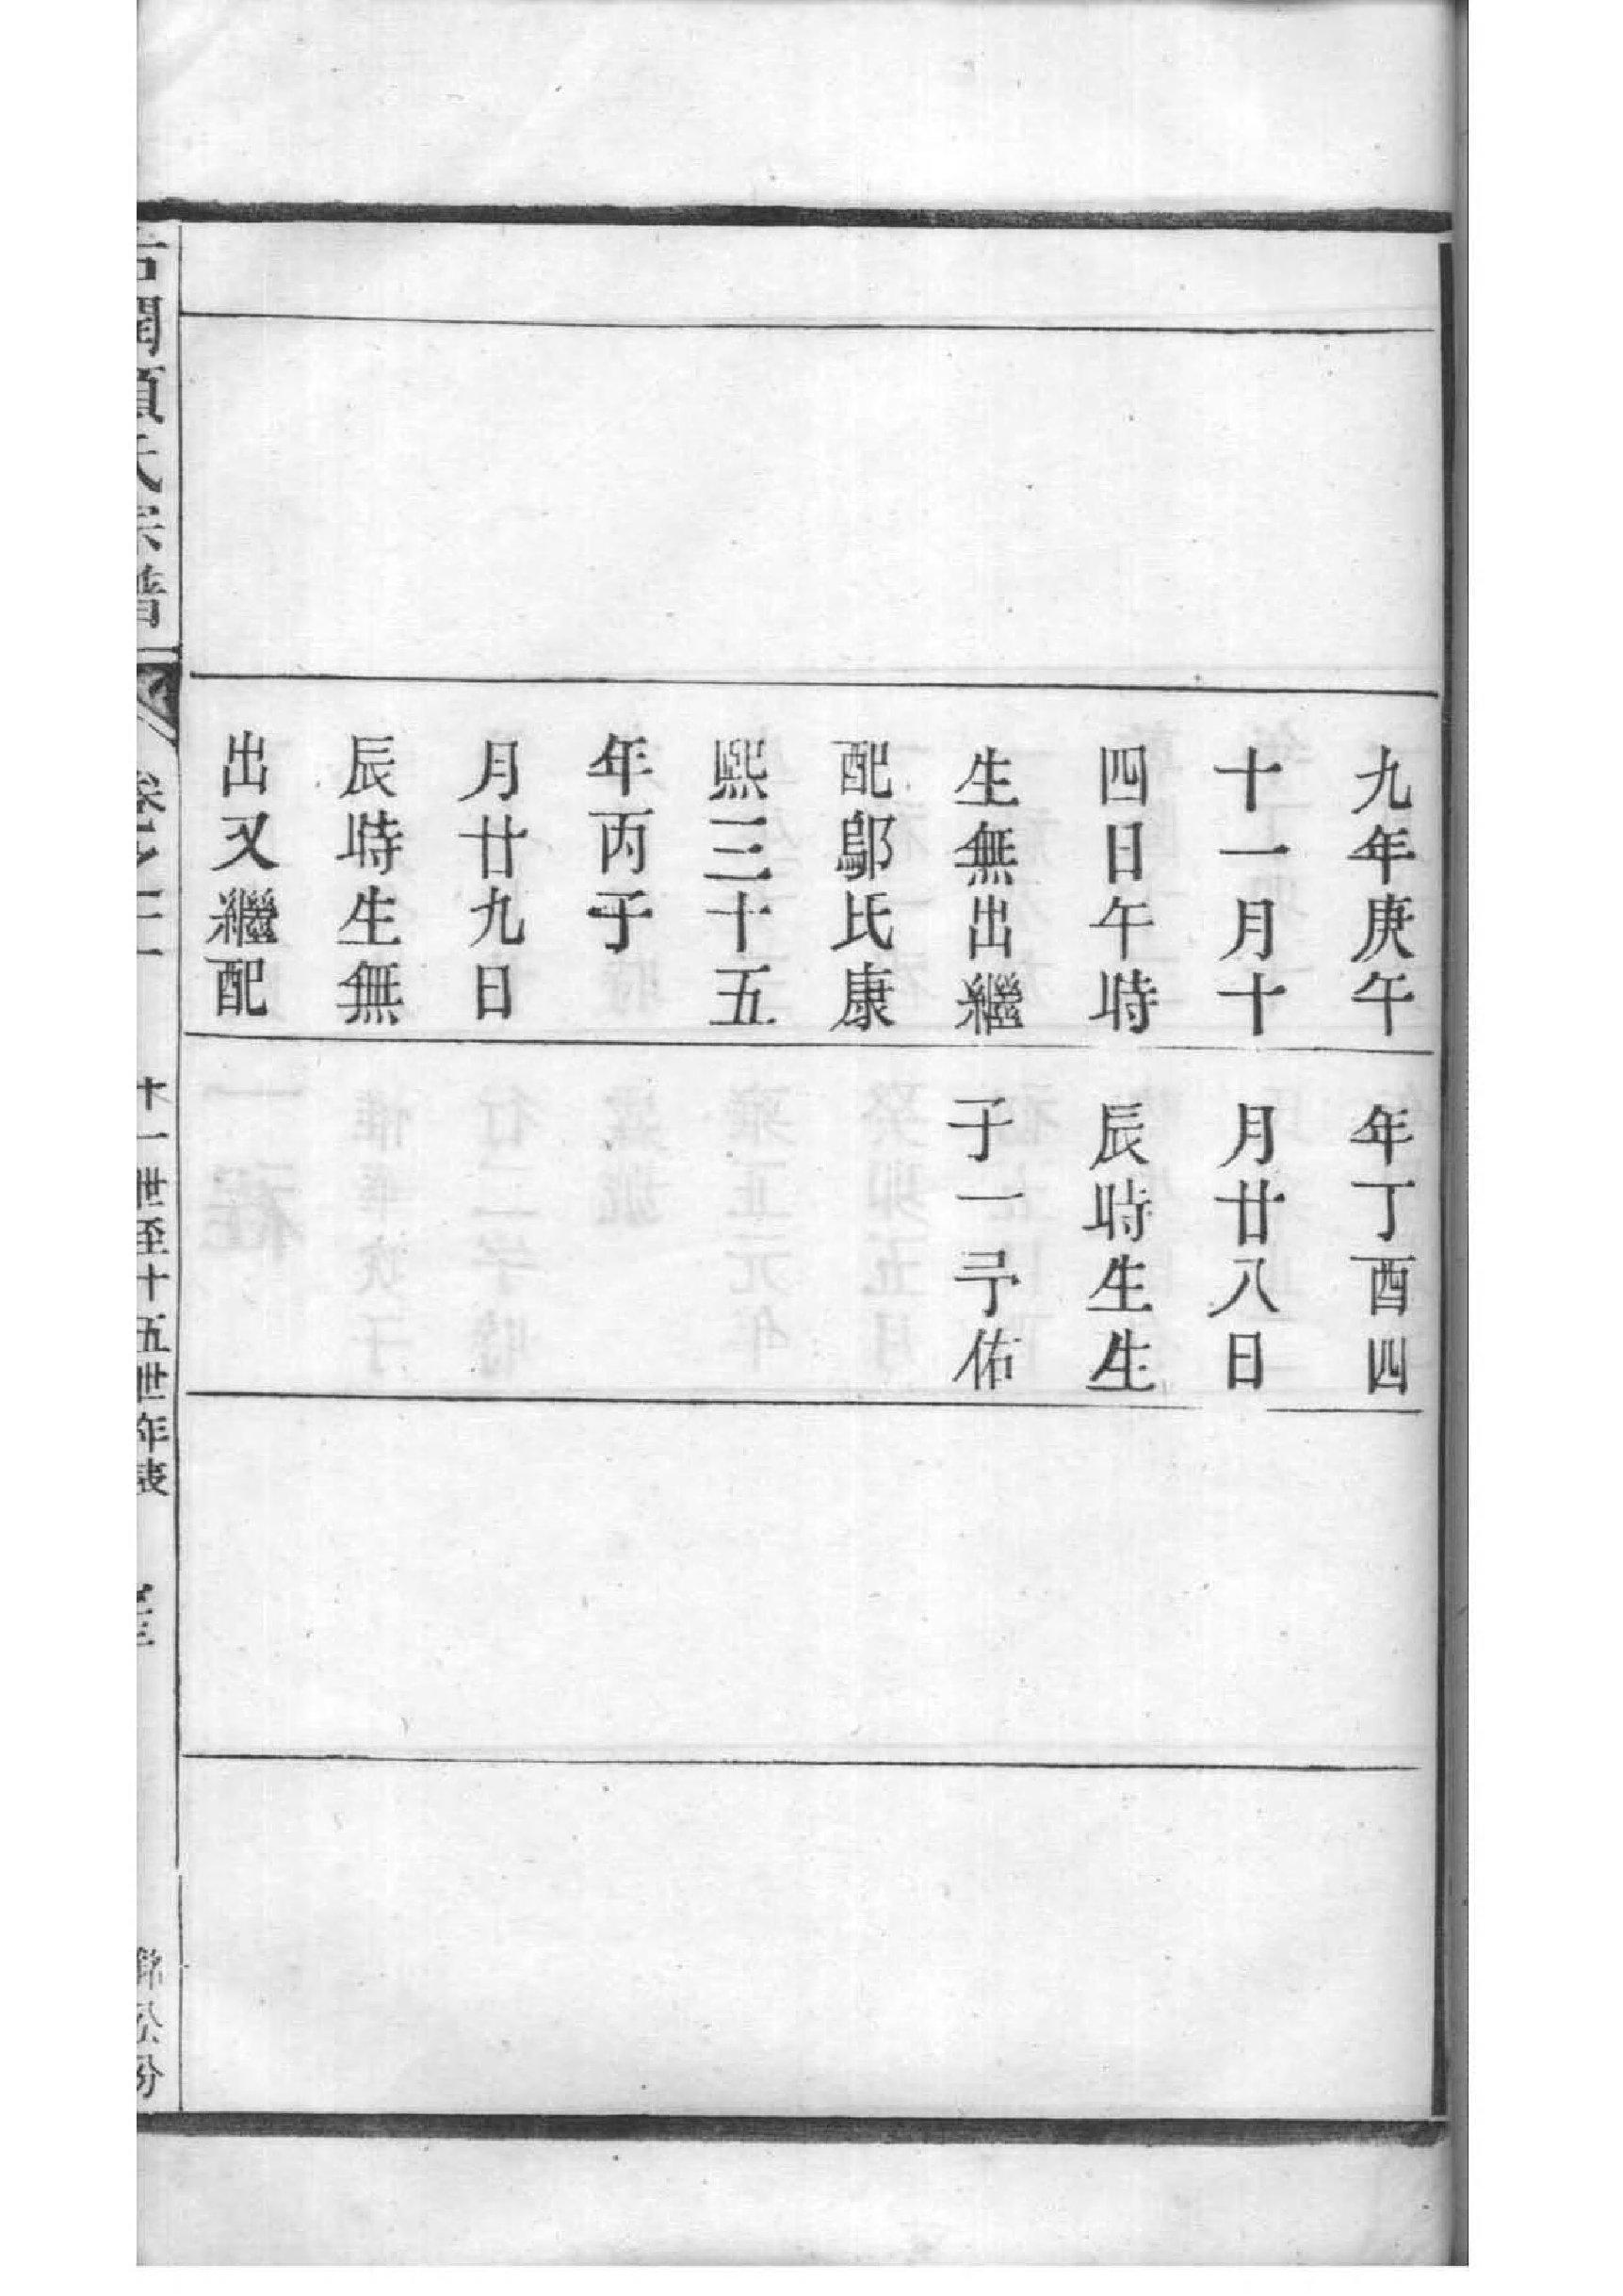 九年庚午
十一月十
四日午時
生無出繼
配鄔氏康
熙三十五
年丙子
月廿九日
辰時生無
出又繼配
年丁酉四
月廿八日
辰時生生
子一孕佑
氏宗譜
卷之二
十一世至十五世年表
公份